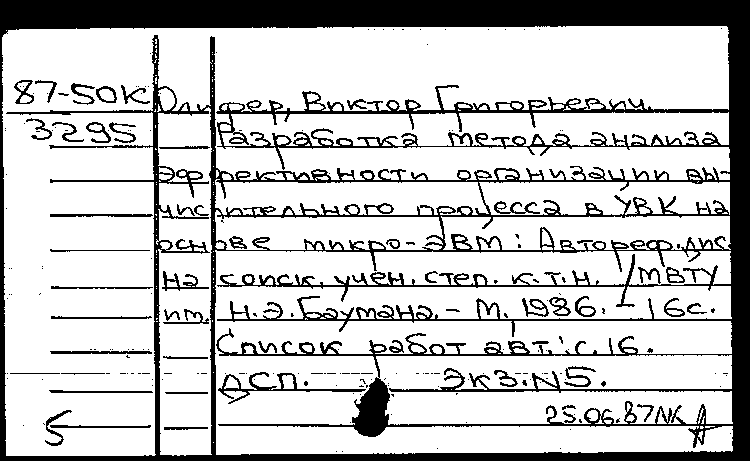 87-50К Олифер, Виктор Григорьевич.
3295 Разработка метода анализа
эффективности организации вы-
числительного процесса в УВК на
основе микро-ЭВМ: Автореф. дис.
на соиск. учен. степ. к.т.н. /МВТУ
им. Н.Э.Баумана. – М., 1986. – 16с.
Список работ авт.: с.16.
ДСП. Экз.N5.
5 25.06.87